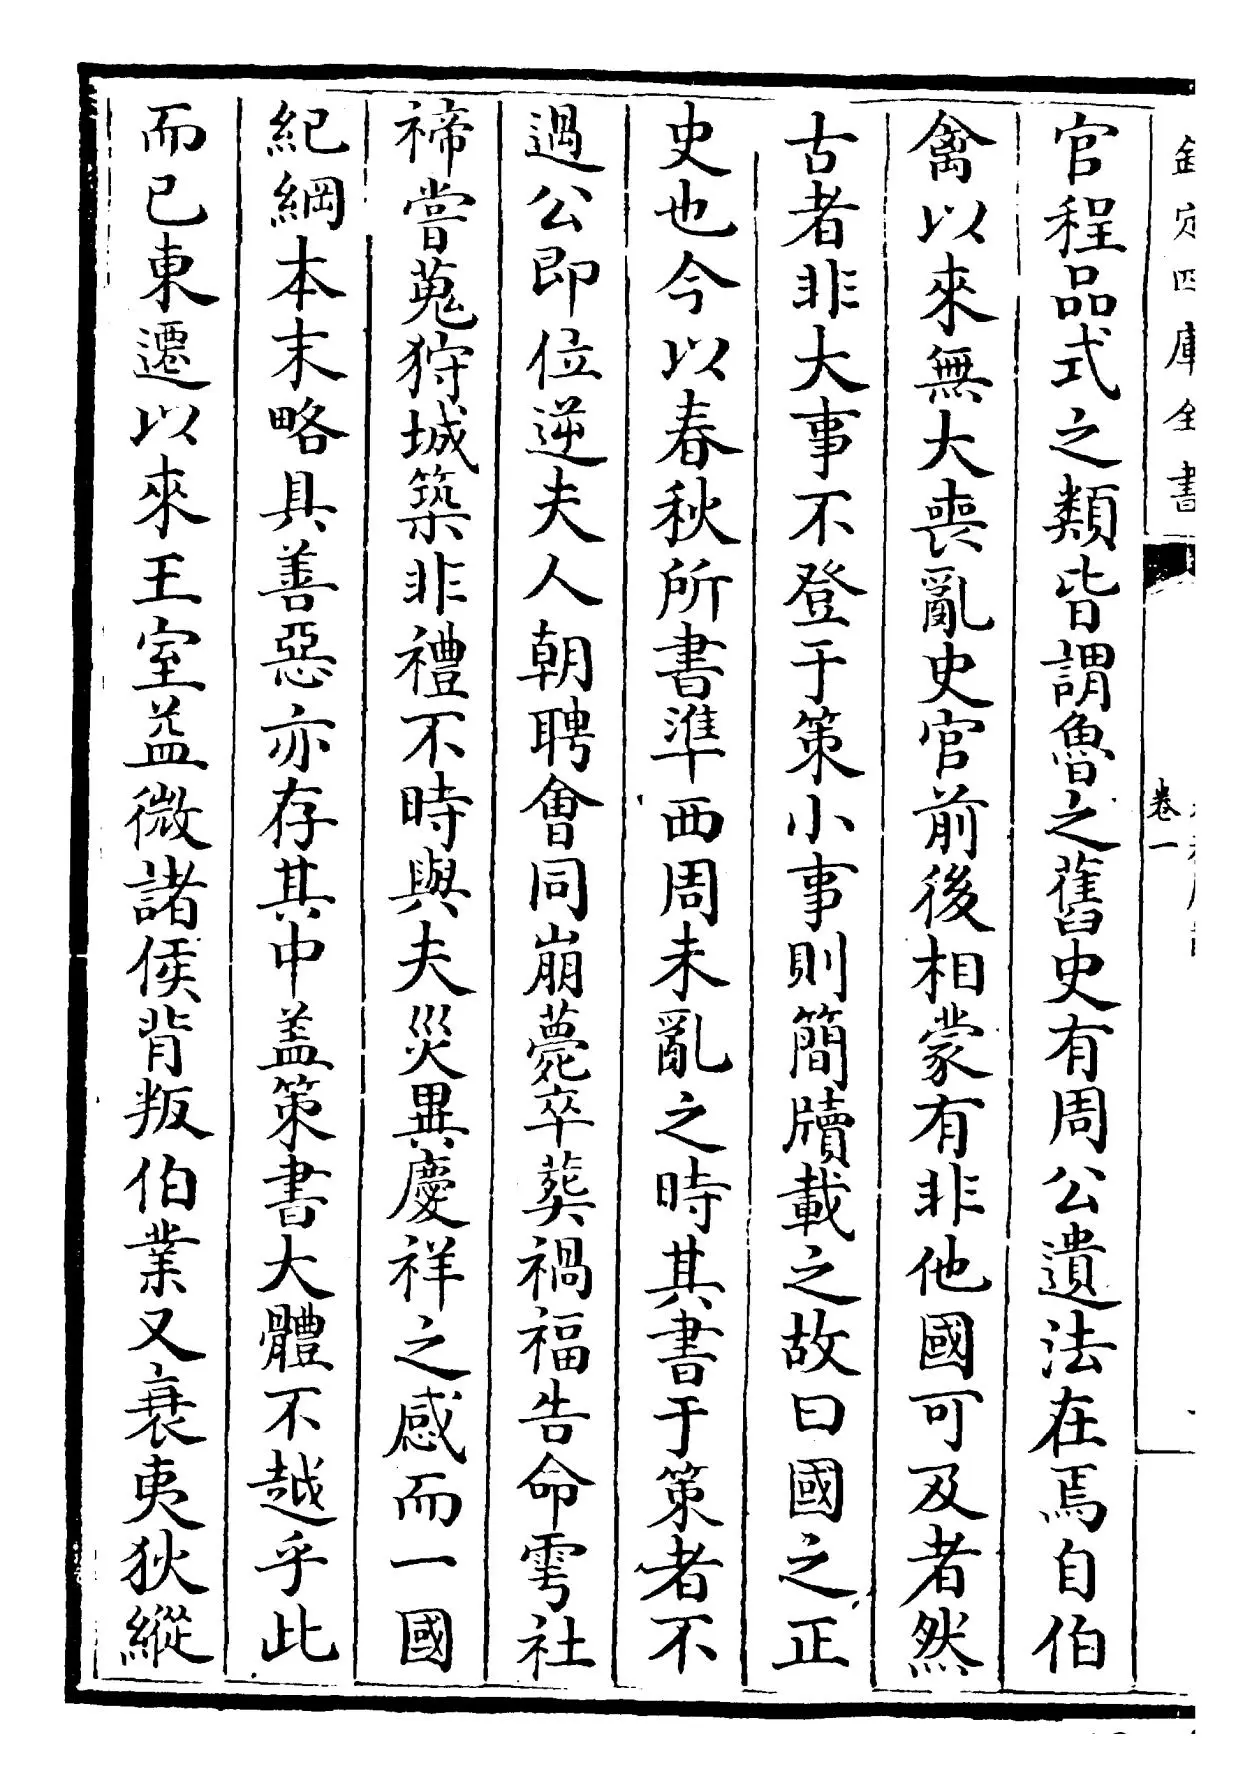 欽定四庫全書
卷一
官程品式之類皆謂魯之舊史有周公遺法在焉自伯
禽以來無大喪亂史官前後相蒙有非他國可及者然
古者非大事不登于策小事則簡牘載之故曰國之正
史也今以春秋所書準西周未亂之時其書于策者不
過公即位逆夫人朝聘會同崩薨卒葬禍福告命雩社
禘嘗蒐狩城築非禮不時與夫災異慶祥之感而一國
紀綱本末略具善惡亦存其中盖策書大體不越乎此
而已東遷以來王室益微諸侯背叛伯業又衰夷狄縱